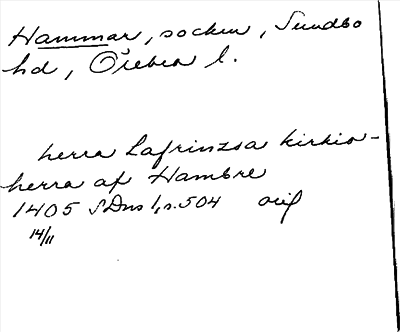 Hammar, socken, Sundbo
hd, Örebro l.
herra Lafrinzsa kirkio-
herra af Hambre
1405 SDns 1, s. 504 orig
14/11